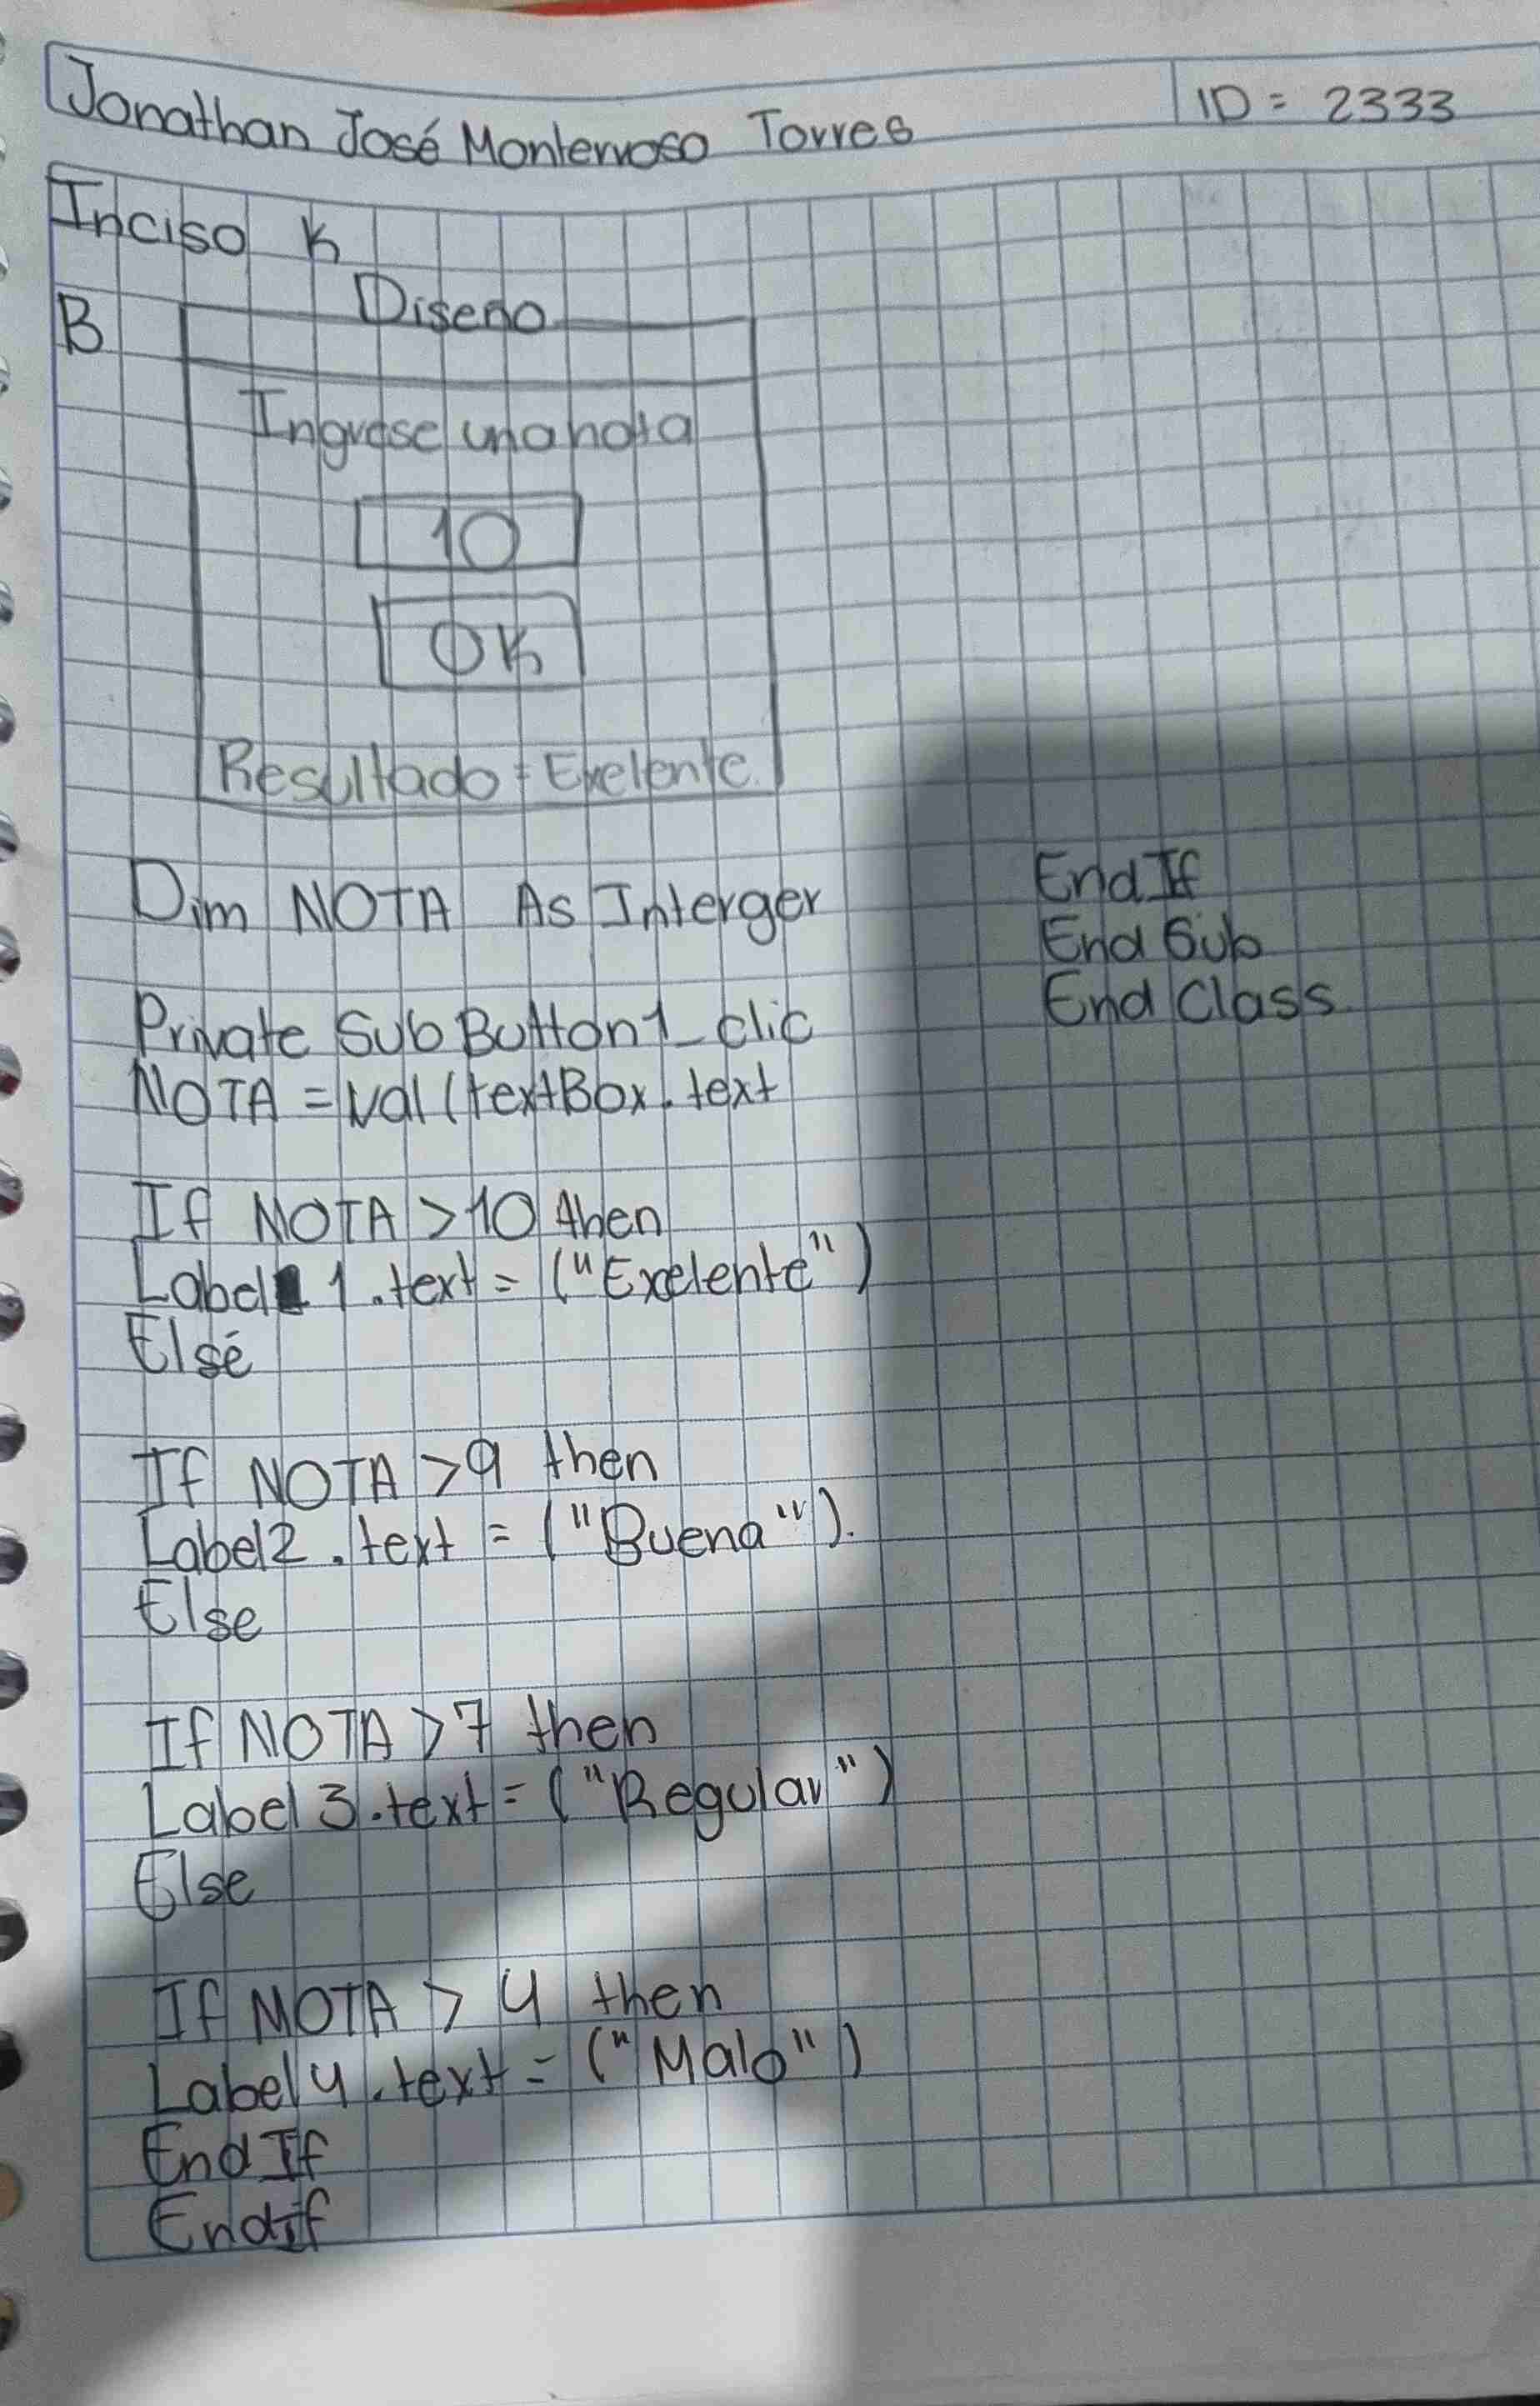 Jonathan José Monterroso Torres
ID = 2333
Inciso K
B
Diseño
Ingrese una nota
10
OK
Resultado = Exelente.
Dim NOTA As Interger
Private Sub Button1_clic
NOTA = val (textBox.text
If NOTA > 10 then
Label 1.text = ("Exelente")
Else
If NOTA > 9 then
Label2.text = ("Buena").
Else
If NOTA > 7 then
Label 3.text = ("Regular")
Else
If NOTA > 4 then
Label4.text = ("Malo")
End If
End if
End If
End Sub
End Class